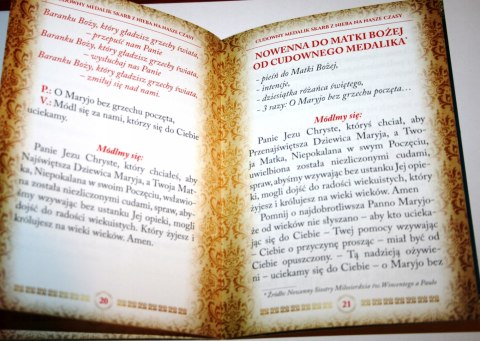 CUDOWNY MEDALIK SKARB Z NIEBA NA NASZE CZASY
Baranku Boży, który gładzisz grzechy świata,
– przepuść nam Panie
Baranku Boży, który gładzisz grzechy świata,
– wysłuchaj nas Panie
Baranku Boży, który gładzisz grzechy świata,
– zmiłuj się nad nami.
P.: O Maryjo bez grzechu poczęta,
V.: Módl się za nami, którzy się do Ciebie
uciekamy.
Módlmy się:
Panie Jezu Chryste, który chciałeś, aby
Najświętsza Dziewica Maryja, a Twoja Mat-
ka, Niepokalana w swoim Poczęciu, wsławio-
na została niezliczonymi cudami, spraw, aby-
śmy wzywając bez ustanku Jej opieki, mogli
dojść do radości wiekuistej. Który żyjesz i
królujesz na wieki wieków. Amen.
20
CUDOWNY MEDALIK SKARB Z NIEBA NA NASZE CZASY
NOWENNA DO MATKI BOŻEJ
OD CUDOWNEGO MEDALIKA*
- pieśń do Matki Bożej,
- intencje,
- dziesiątka różańca świętego,
- 3 razy: O Maryjo bez grzechu poczęta…
Módlmy się:
Panie Jezu Chryste, któryś chciał, aby
Przenajświętsza Dziewica Maryja, a Two-
ja Matka, Niepokalana w swoim Poczęciu,
uwielbiona została niezliczonymi cudami,
spraw, abyśmy wzywając bez ustanku Jej opie-
ki, mogli dojść do radości wiekuistych, który
żyjesz i królujesz na wieki wieków. Amen
Pomnij o najdobrotliwsza Panno Maryjo-
że od wieków nie słyszano – aby kto ucieka-
jąc się do Ciebie – Twej pomocy wzywając
– Ciebie o przyczynę prosząc – miał być od
Ciebie opuszczony. – Tą nadzieją ożywie-
ni – uciekamy się do Ciebie – o Maryjo bez
* Źródło: Nowenny Siostry Miłosierdzia św. Wincentego a Paulo
21